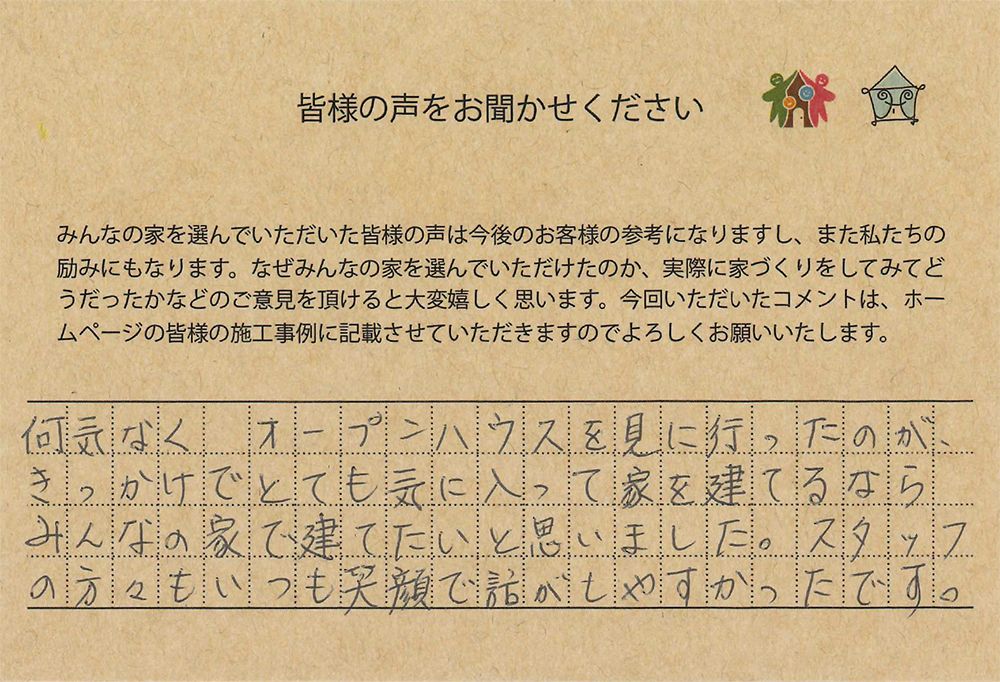 皆様の声をお聞かせください
みんなの家を選んでいただいた皆様の声は今後のお客様の参考になりますし、また私たちの
励みにもなります。なぜみんなの家を選んでいただけたのか、実際に家づくりをしてみてど
うだったかなどのご意見を頂けると大変嬉しく思います。今回いただいたコメントは、ホー
ムページの皆様の施工事例に記載させていただきますのでよろしくお願いいたします。
何気なく オープンハウスを見に行ったのが、
きっかけでとても気に入って家を建てるなら
みんなの家で建てたいと思いました。スタッフ
の方々もいつも笑顔で話がしやすかったです。